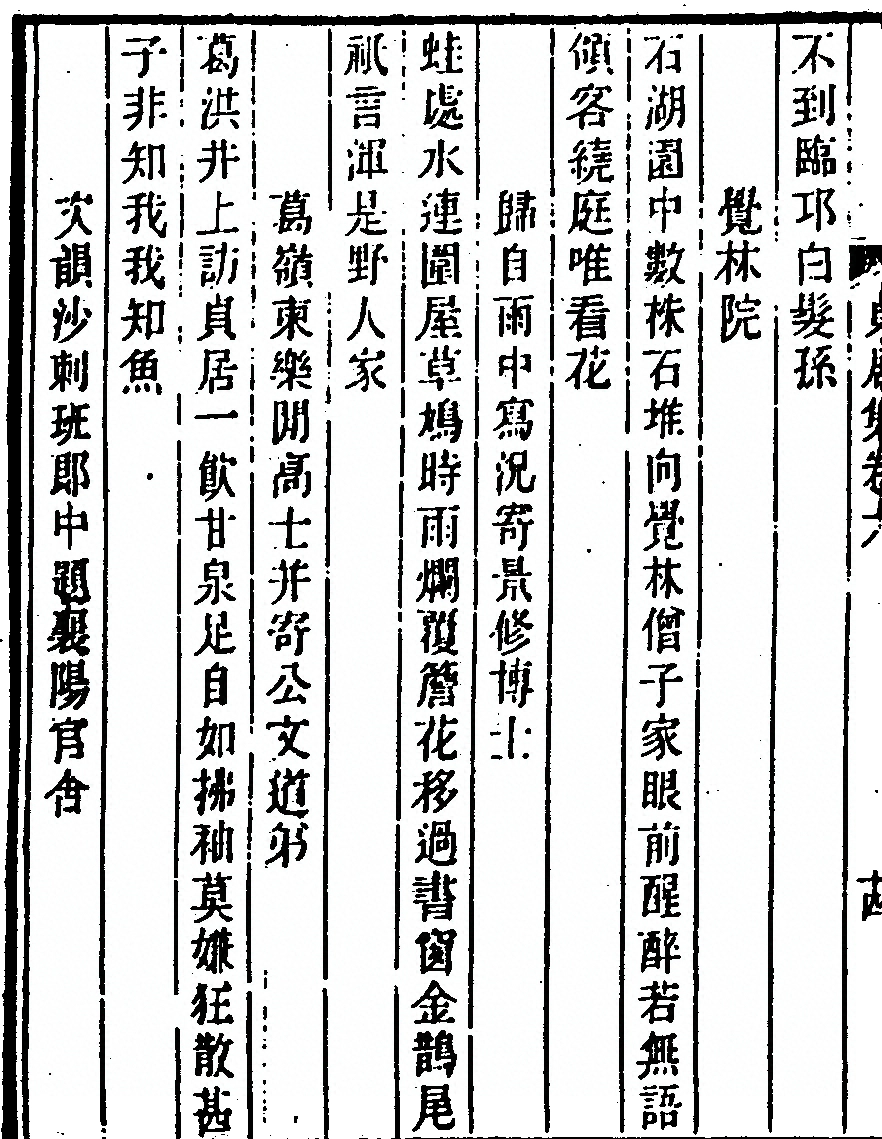 不到臨邛白髮孫
覺林院
石湖園中數株石堆向覺林僧子家眼前醒醉若無語
傾客繞庭唯看花
歸自雨中寫況寄景修博士
蛙處水連圍屋草鳩時雨爛覆簷花移過書窗金鵲尾
祇言渾是野人家
葛嶺東樂閒高士并寄公文道躬
葛洪井上訪貞居一飲甘泉足自如拂袖莫嫌狂散甚
子非知我我知魚
次韻沙剌班郎中題襄陽官舍